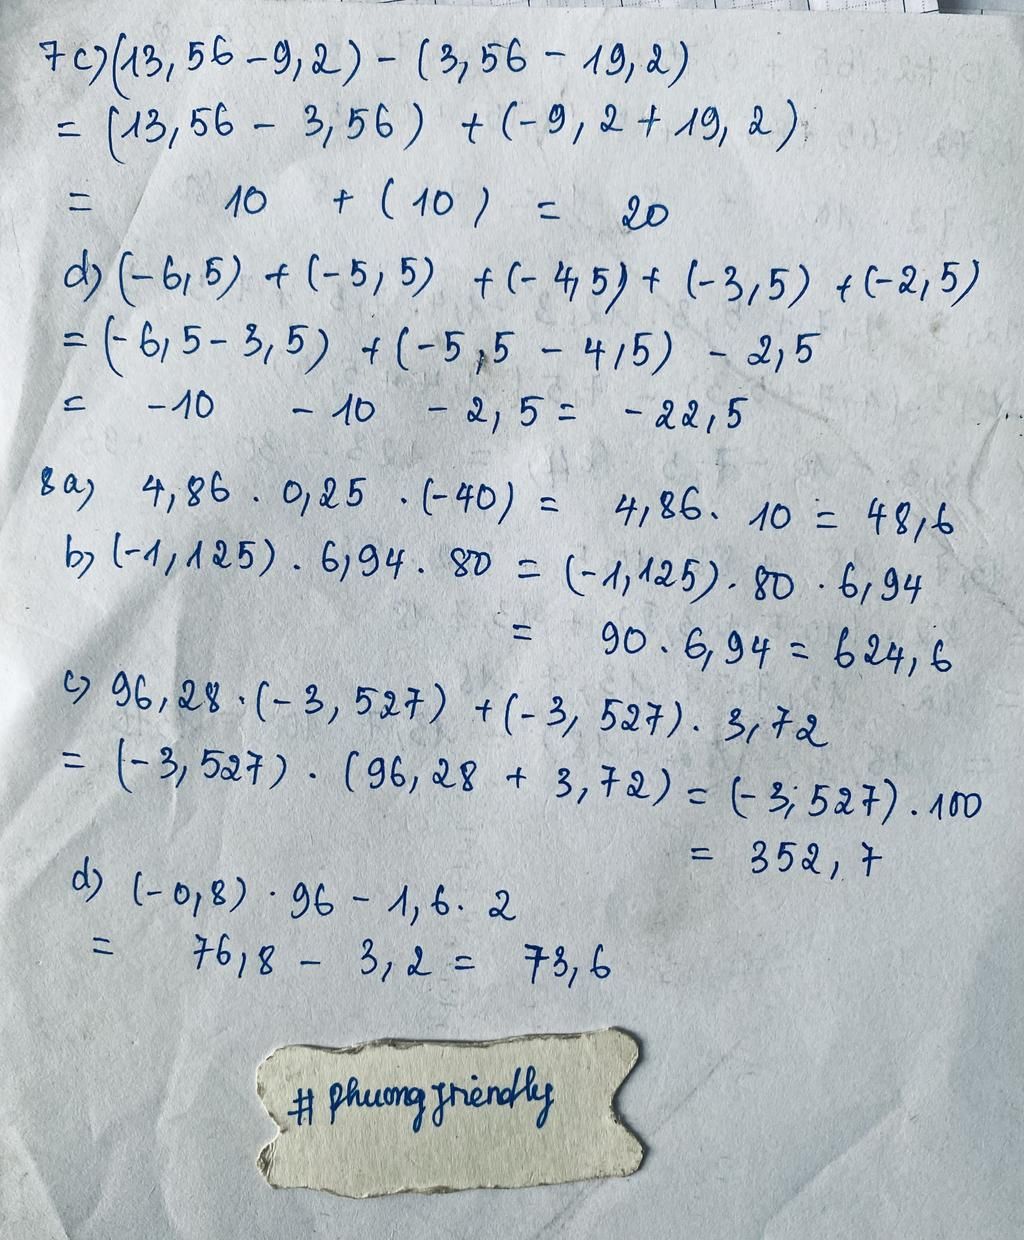 7c) (13,56 - 9,2) - (3,56 - 19,2)
= (13,56 - 3,56) + (-9,2 + 19,2)
= 10 + (10) = 20
d) (-6,5) + (-5,5) + (-4,5) + (-3,5) + (-2,5)
= (-6,5 - 3,5) + (-5,5 - 4,5) - 2,5
= -10 - 10 - 2,5 = -22,5
8a) 4,86 . 0,25 . (-40) = 4,86 . 10 = 48,6
b) (-1,125) . 6,94 . 80 = (-1,125) . 80 . 6,94
= 90 . 6,94 = 624,6
c) 96,28 . (-3,527) + (-3,527) . 3,72
= (-3,527) . (96,28 + 3,72) = (-3,527) . 100
= 352,7
d) (-0,8) . 96 - 1,6 . 2
= 76,8 - 3,2 = 73,6
# phuong friendly